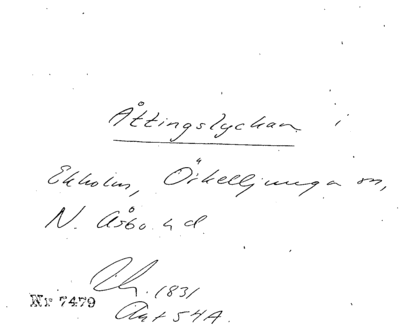 Åttingslyckan
Ekholm, Örkelljunga sn,
N. Åsbo hd.
1831
Nr 7479
Akt 54A.